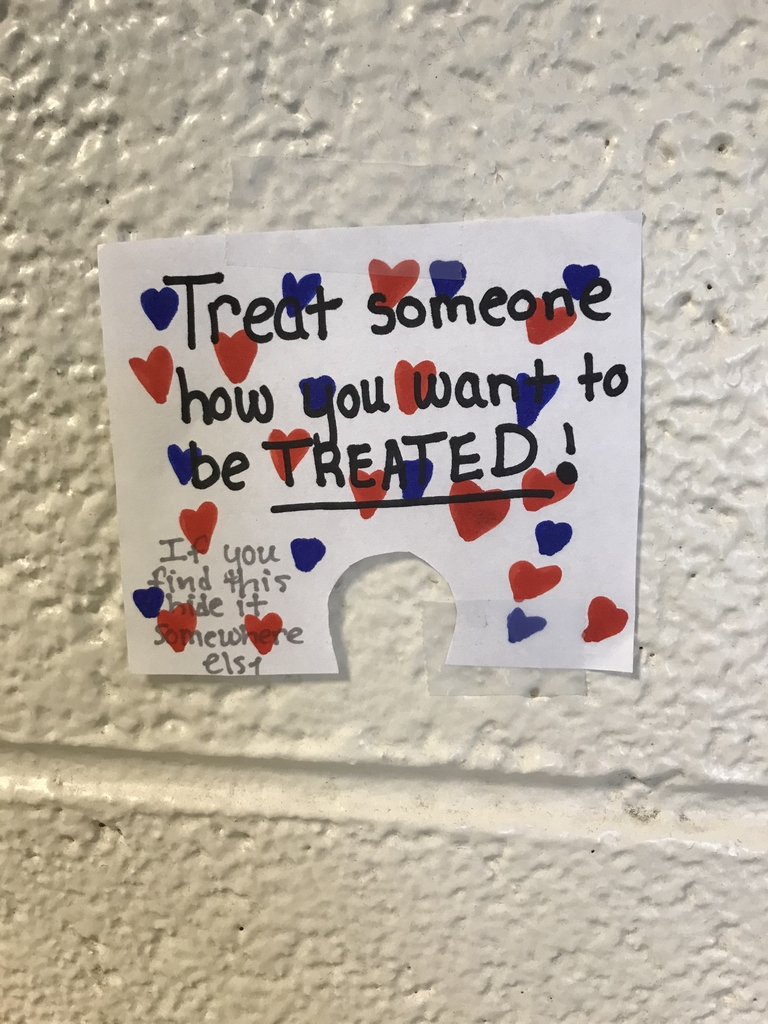 Treat someone
how you want to
be TREATED!
If you
find this
hide it
somewhere
else